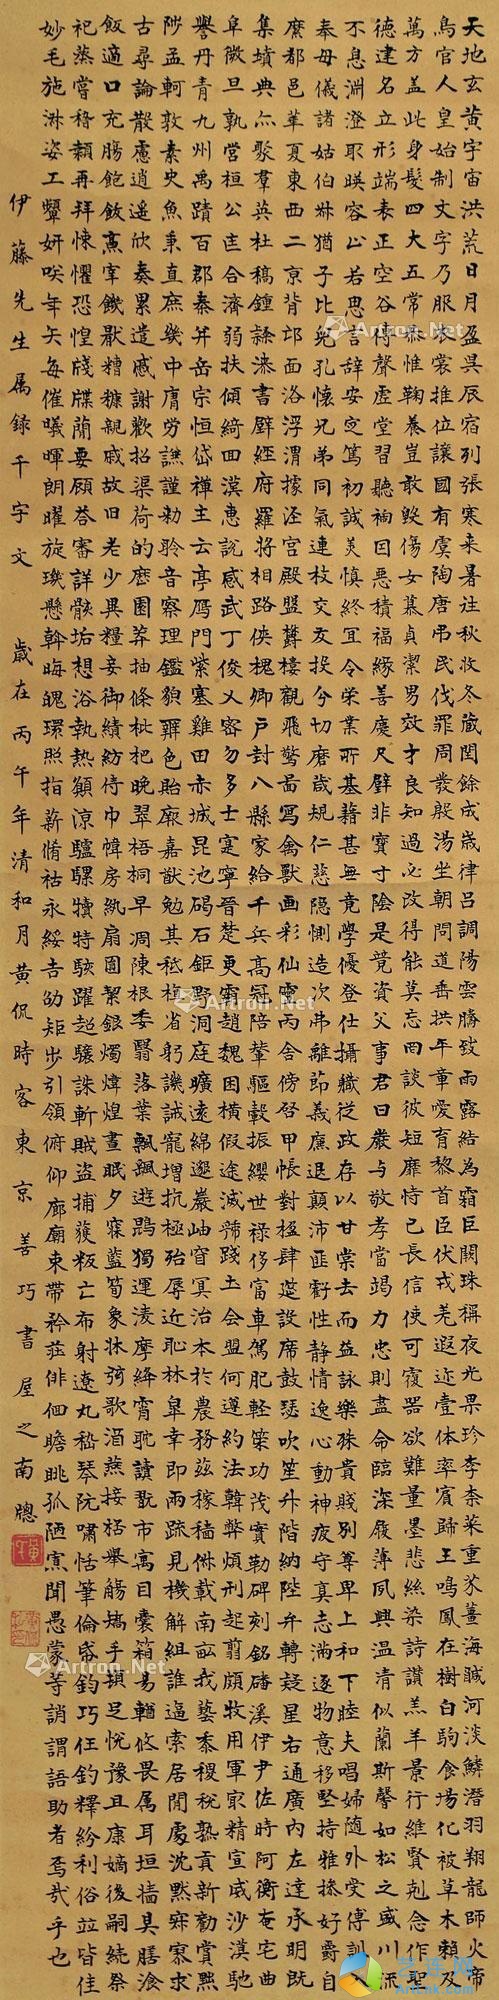 天地玄黃宇宙洪荒日月盈昃辰宿列張寒来暑往秋收冬藏閏餘成歲律呂調陽雲騰致雨露結為霜巨闕珠稱夜光果珍李柰菜重芥薑海鹹河淡鱗潛羽翔龍師火帝
鳥官人皇始制文字乃服衣裳推位讓國有虞陶唐弔民伐罪周發殷湯坐朝問道垂拱平章愛育黎首臣伏戎羌遐迩壹体率賓歸王鳴鳳在樹白駒食場化被草木賴及
萬方盖此身髮四大五常恭惟鞠養豈敢毀傷女慕貞潔男效才良知過必改得能莫忘罔談彼短靡恃己長信使可覆器欲難量墨悲絲染詩讚羔羊景行維賢剋念作聖
德建名立形端表正空谷傳聲虛堂習聽禍因惡積福緣善慶尺璧非寶寸陰是競資父事君曰嚴与敬孝當竭力忠則盡命臨深履薄夙興温凊似蘭斯馨如松之盛川流
不息淵澄取暎容止若思言辞安定篤初誠美慎終宜令榮業所基藉甚無竟學優登仕攝職從政存以甘棠去而益詠樂殊貴賤別尊卑上和下睦夫唱婦隨外受傅訓入
奉母儀諸姑伯叔猶子比兒孔懷兄弟同氣連枝交友投分切磨箴規仁慈隐惻造次弗離節義廉退顛沛匪虧性静情逸心動神疲守真志滿逐物意移堅持雅操好爵自
縻都邑華夏東西二京背邙面洛浮渭據涇宫殿盤鬱樓觀飛驚畵寫禽獸画彩仙靈丙舍傍啓甲帳對楹肆筵設席鼓瑟吹笙升階納陛弁轉疑星右通廣內左達承明既
集墳典亦聚羣英杜稿鍾隸漆書壁經府羅將相路俠槐卿戶封八縣家給千兵高冠陪輦驅轂振纓世禄侈富車駕肥軽策功茂實勒碑刻銘磻溪伊尹佐時阿衡奄宅曲
阜微旦孰營桓公匡合濟弱扶傾綺回漢惠說感武丁俊乂密勿多士寔寧晉楚更霸趙魏困橫假途滅虢踐土会盟何遵約法韓弊煩刑起翦頗牧用軍最精宣威沙漠馳
譽丹青九州禹蹟百郡秦并岳宗恒岱禪主云亭鴈門紫塞雞田赤城昆池碣石鉅野洞庭曠遠綿邈巖岫窅冥治本於農務兹稼穡俶載南畝我藝黍稷稅熟貢新勸賞黜
陟孟軻敦素史魚秉直庶幾中庸勞謙謹勑聆音察理鑑貌辨色貽厥嘉猷勉其祗植省躬譏誡寵增抗極殆辱近恥林皐幸即兩疏見機解組誰逼索居閒處沈默寂寥求
古尋論散慮逍遥欣奏累遣慼謝歡招渠荷的歷園莽抽條枇杷晚翠梧桐早凋陳根委翳落葉飄颻遊鵾獨運凌摩絳霄耽讀翫市寓目囊箱易輶攸畏属耳垣墻具膳飡
飯適口充腸飽飫烹宰饑厭糟糠親戚故旧老少異糧妾御績紡侍巾帷房紈扇圓絜銀燭煒煌晝眠夕寐藍筍象牀弦歌酒燕接杯舉觴矯手頓足悅豫且康嫡後嗣続祭
祀蒸嘗稽顙再拜悚懼恐惶牋牒蘭要顧答審詳骸垢想浴執熱願涼驢騾犢特駭躍超驤誅斬賊盗捕獲叛亡布射遼丸嵇琴阮嘯恬筆倫紙鈞巧任釣釋紛利俗竝皆佳
妙毛施淋姿工顰妍咲年矢每催曦暉朗曜旋璣懸斡晦魄環照指薪脩祜永綏吉劭矩步引領俯仰廊廟束帶矜莊徘徊瞻眺孤陋寡聞愚蒙等誚謂語助者焉哉乎也
伊藤先生属録千字文　歲在丙午年清和月黃侃時客東京善巧書屋之南牕